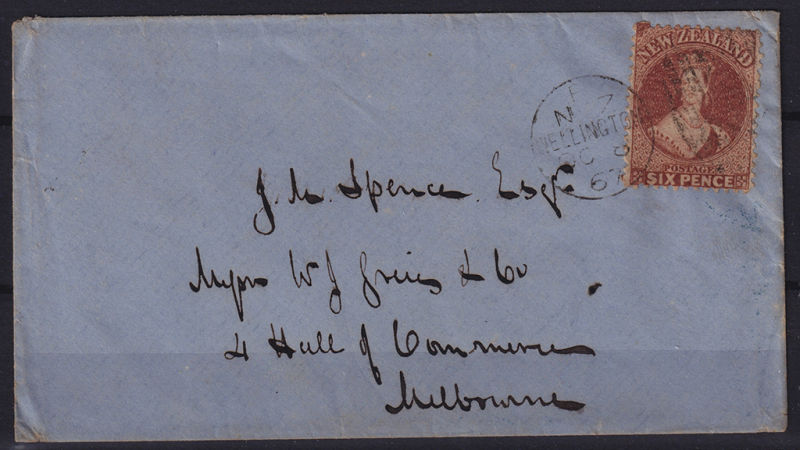 NEW ZEALAND
POSTAGE
SIX PENCE
N Z
WELLINGTON
OC 8
67
J. M. Spence Esqr
Messrs W J & Co
4 Hall of Commerce
Melbourne